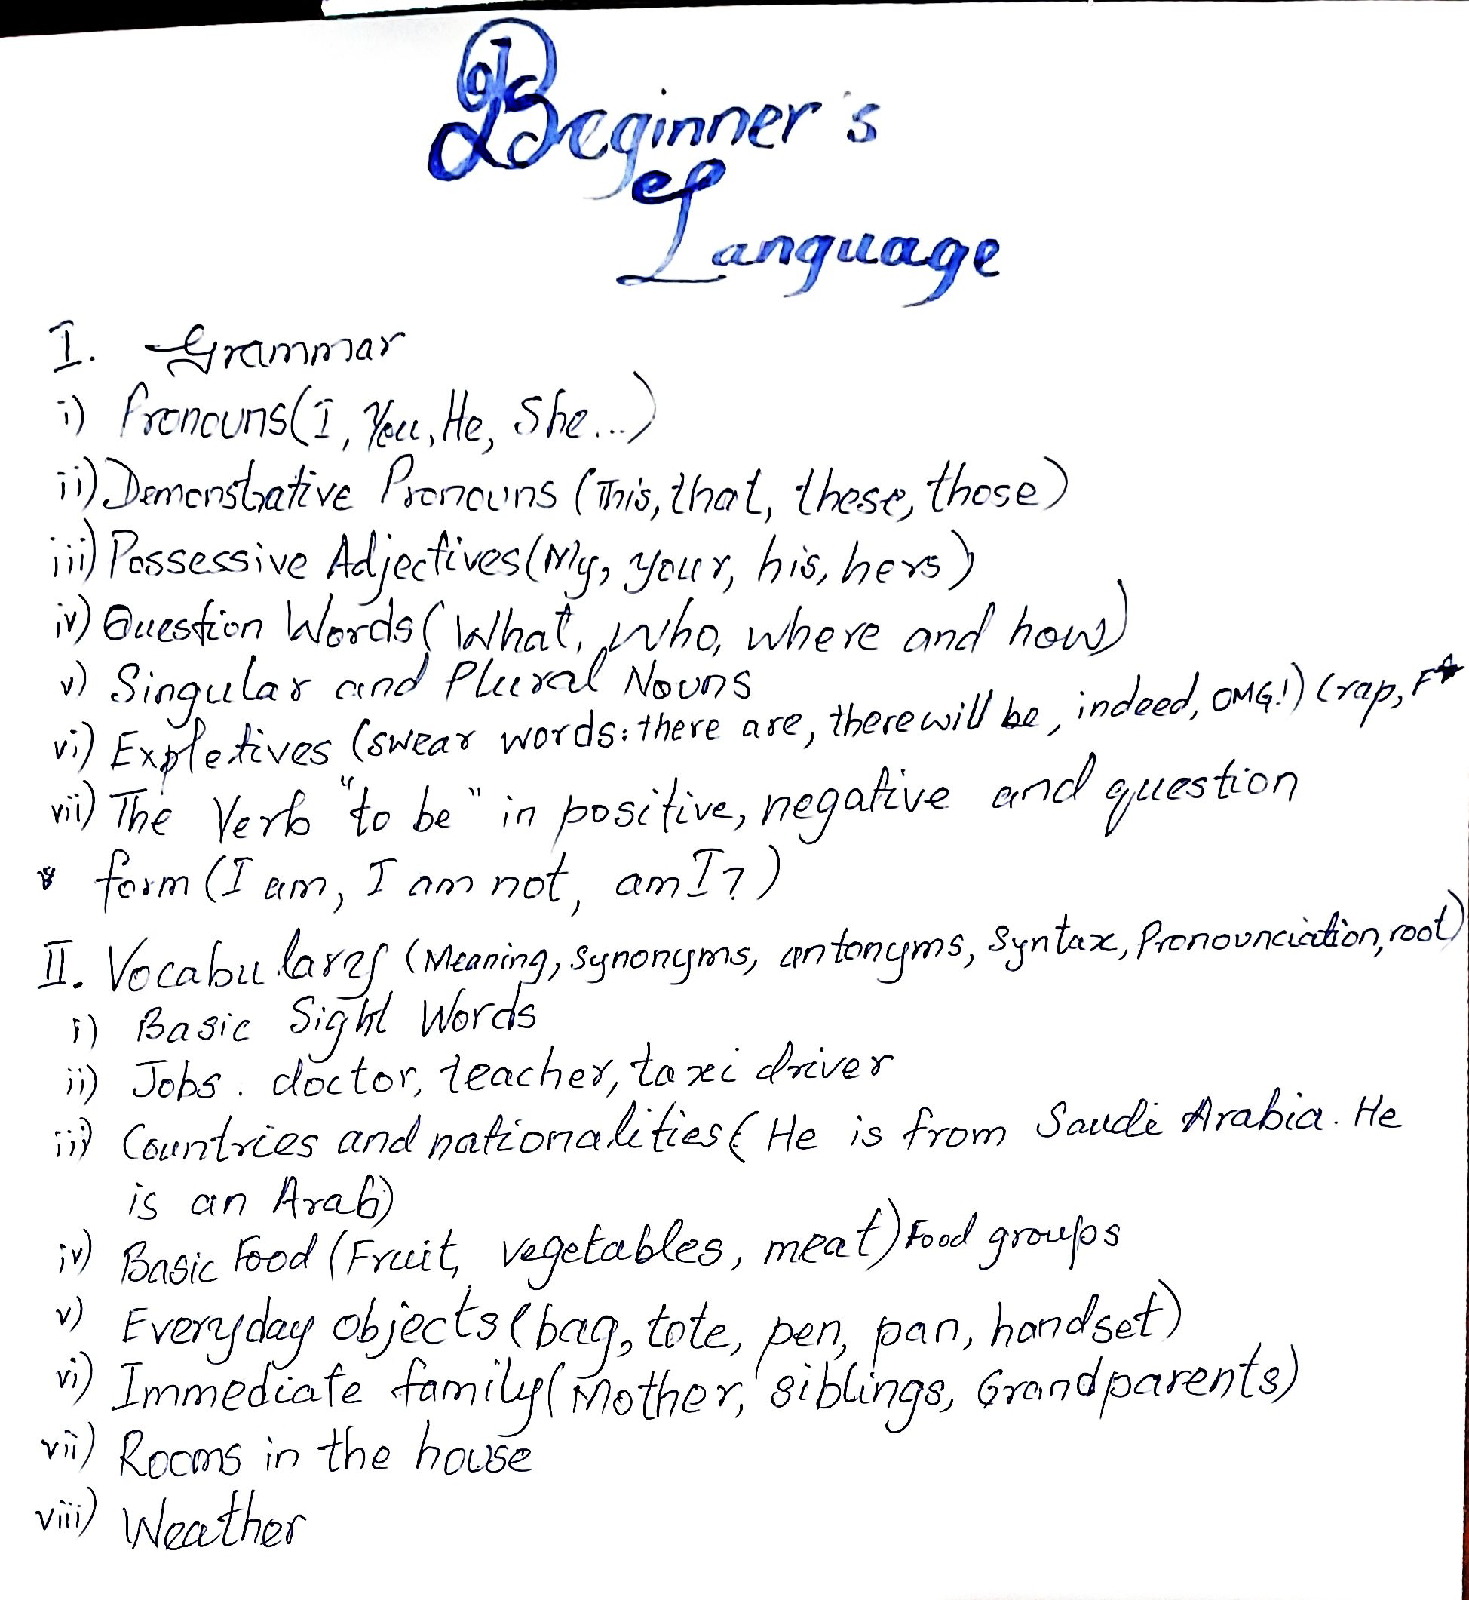 Beginner's
Language
I. Grammar
i) Pronouns (I, You, He, She...)
ii) Demonstrative Pronouns (This, that, these, those)
iii) Possessive Adjectives (My, your, his, hers)
iv) Question Words (What, Who, where and how)
v) Singular and Plural Nouns
vi) Expletives (swear words: there are, there will be, indeed, OMG!) Crap, F*
vii) The Verb "to be" in positive, negative and question
* form (I am, I am not, am I?)
II. Vocabulary (Meaning, synonyms, antonyms, syntax, Pronounciation, root)
i) Basic Sight Words
ii) Jobs. doctor, teacher, taxi driver
iii) Countries and nationalities (He is from Saudi Arabia. He
is an Arab)
iv) Basic Food (Fruit, vegetables, meat) Food groups
v) Everyday objects (bag, tote, pen, pan, handset)
vi) Immediate family (Mother, siblings, Grandparents)
vii) Rooms in the house
viii) Weather